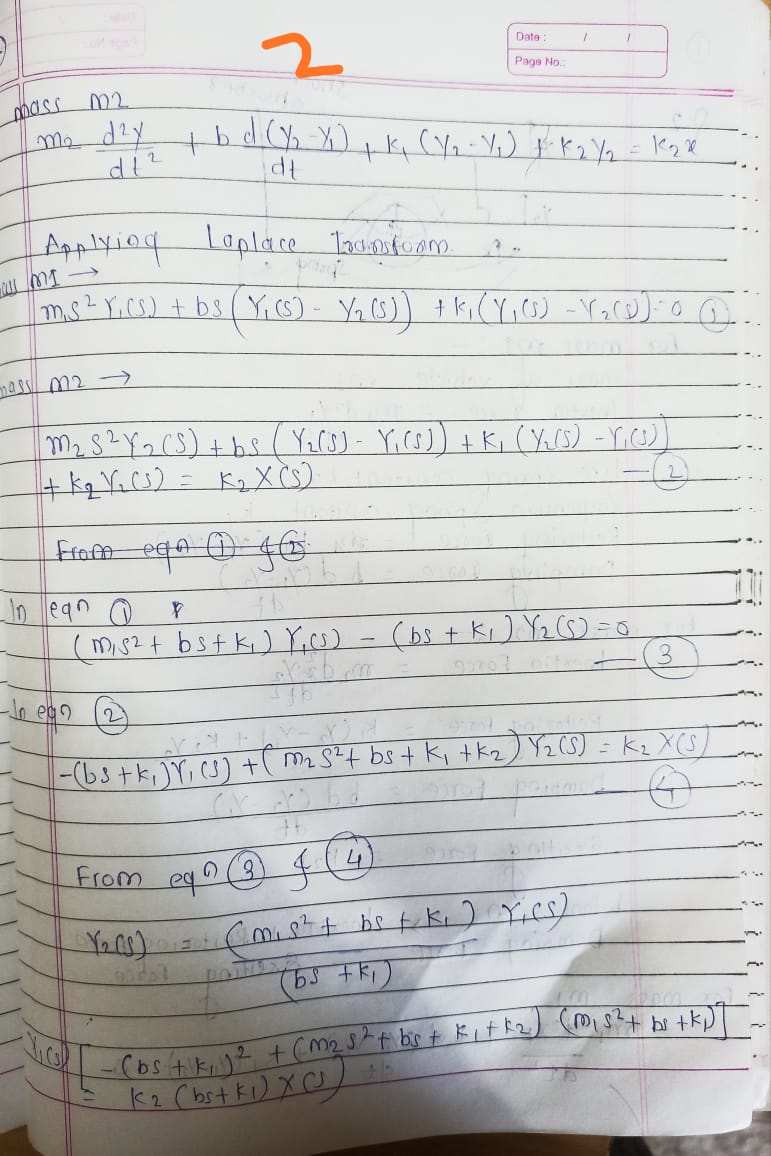 2
Date : / /
Page No.:
mass m2
m2 d²y/dt² + b d(Y2-Y1)/dt + K1 (Y2-Y1) + K2Y2 = K2x
Applying Laplace Transform
m1 →
m1s² Y1(s) + bs (Y1(s) - Y2(s)) + K1(Y1(s) - Y2(s)) = 0 ①
mass m2 →
m2 s² Y2(s) + bs (Y2(s) - Y1(s)) + K1 (Y2(s) - Y1(s))
+ K2 Y2(s) = K2 X(s) — ②
From eqn ① & ②
In eqn ①
(m1s² + bs + K1) Y1(s) - (bs + K1) Y2(s) = 0
— ③
In eqn ②
-(bs + K1)Y1(s) + (m2 s² + bs + K1 + K2) Y2(s) = K2 X(s)
— ④
From eqn ③ & ④
Y2(s) = (m1s² + bs + K1) Y1(s)
(bs + K1)
Y1(s) [-(bs + K1)² + (m2s² + bs + K1 + K2) (m1s² + bs + K1)]
= K2 (bs + K1) X(s)